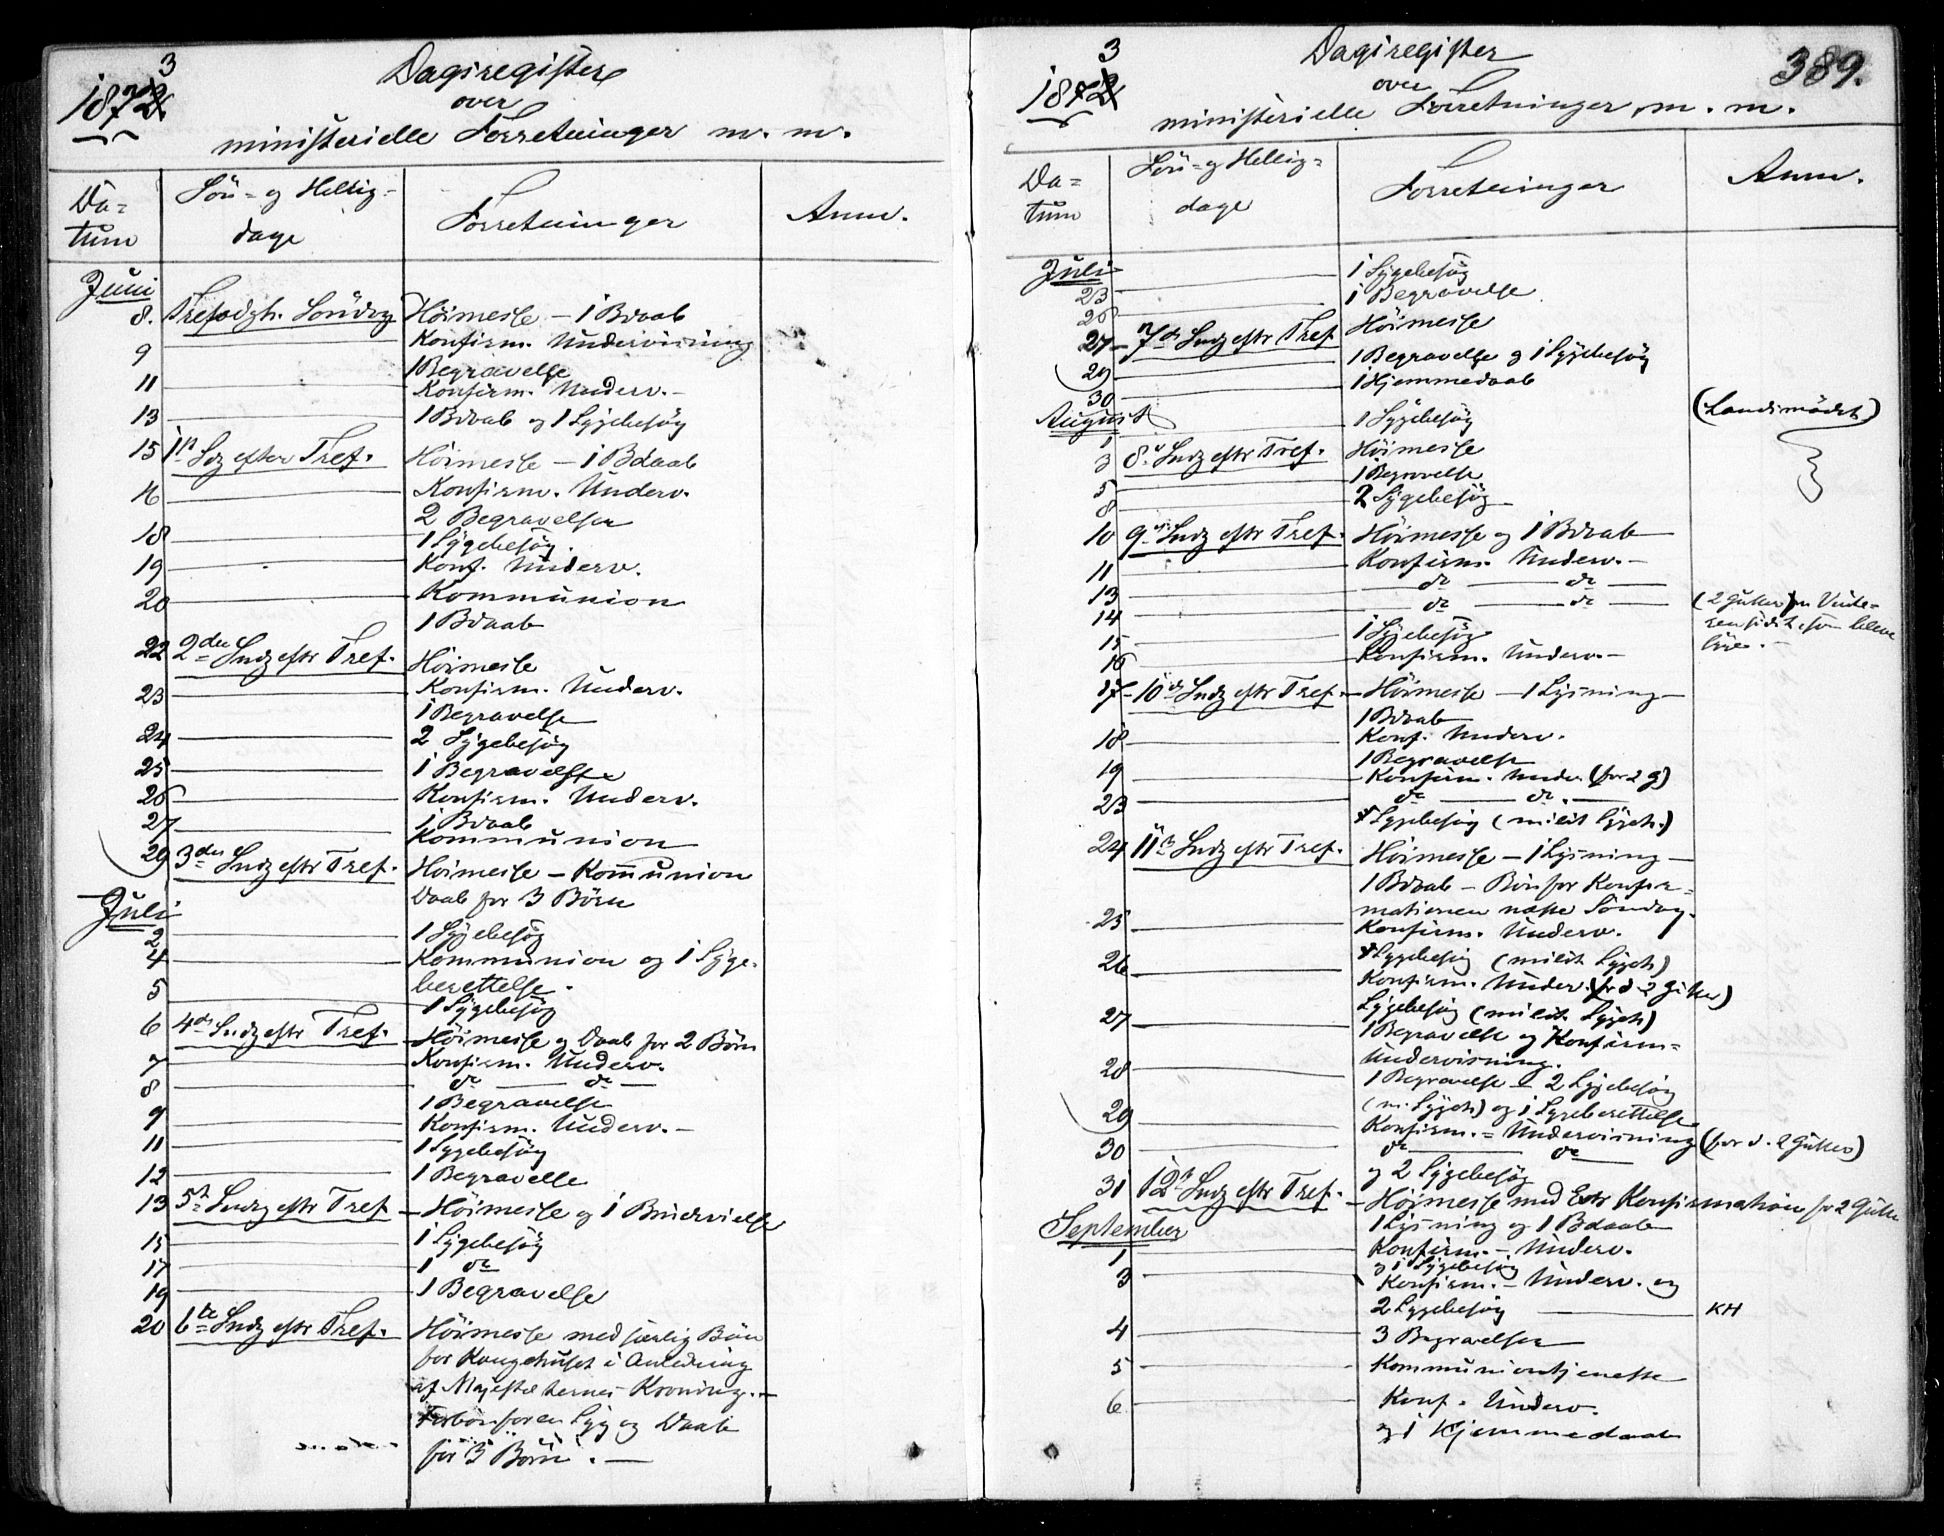 3
1872. Dagsregister
over
ministerielle Forretninger m. m.
Da=
tum
Sön- og Hellig-
dage
Forretninger
Anm.
Juni
8. Trefoldgh. Söndag Höimesse - 1 Bdaab
9 Konfirm. Undervisning
1 Begravelse
11 Konfirm. Underv. -
13 1 Bdaab og 1 Sygebesög
15 1ste Sdg efter Tref. Höimesse - 1 Bdaab
16 Konfirm. Underv.
2 Begravelser
18 1 Sygebesög.
19 Konf. Underv.
20 Kommunion
1 Bdaab
22 2den Sndg eftr Tref. Höimesse
23 Konfirm. Underv.
1 Begravelse
24 2 Sygebesög
25 1 Begravelse
26 Konfirm. Underv.
27 1 Bdaab
Kommunion
29 3die Sndg eftr Tref. Höimesse - Kommunion
Daab for 3 Börn
Juli
2 1 Sygebesög
4 Kommunion og 1 Syge-
berettelse.
5 1 Sygebesög
6 4de Sndg eftr Tref. Höimesse og Daab for 2 Börn
7 Konfirm. Underv.
8 do - do -
9 1 Begravelse
Konfirm. Underv. -
11 1 Sygebesög
12 1 Begravelse
13 5te Sndg eftr Tref - Höimesse og 1 Brudevielse
15 1 Sygebesög
17 1 do
19 1 Begravelse
20 6te Sndg eftr Tref. Höimesse med særlig Bön
for Kongehuset i Anledning
af Majestæternes Kroning. -
Forbön for en Syg og Daab
for 3 Börn. -
3
1872 Dagsregister 389.
over
ministerielle Forretninger m. m.
Da=
tum
Sön- og Hellig-
dage
Forretninger
Anm.
Juli
23 1 Sygebesög
26 1 Begravelse
27 - 7de Sndg eftr Tref Höimesse
29 1 Begravelse og 1 Sygebesög
30 1 Hjemmedaab
August (Landsmödet)
1 1 Sygebesög
3 8de Sndg eftr Tref. Höimesse
5 1 Begravelse
8 2 Sygebesög
10 9de Sndg eftr Tref. Höimesse og 1 Bdaab
11 Konfirm. Underv. -
13 do - do -
14 do - do - (2 Gutter)
15 1 Sygebesög
16 Konfirm. Underv. -
17 - 10de Sndg eftr Tref. - Höimesse - 1 Lysning -
1 Bdaab
18 Konf. Underv.
1 Begravelse
19 Konfirm. Under. (for 2 G)
23 do - do. -
Sygebesög (milit Sygeh.)
24 11te Sndg eftr Tref. Höimesse - 1 Lysning -
1 Bdaab - Bön for Konfir=
mationen næste Söndag.
25 Konfirm. Underv.
26 Sygebesög (milit. Sygeh)
Konfirm. Underv. (for d. 2 Gutter)
27 Sygebesög (milit. Sygeh)
1 Begravelse og Konfirm=
Undervisning.
28 1 Begravelse - 2 Sygebesög
(m. Sygeh) og 1 Sygeberettelse
29 Konfirm.= Undervisning (for d. 2 Gutter)
30 do - do
og 2 Sygebesög
31 12te Sndg eftr Tref. - Höimesse med Extr Konfirmation for 2 Gutter
1 Lysning og 1 Bdaab
September
1 Konfirm. - Underv.
og 1 Sygebesög
3 Konfirm. - Underv. og
2 Sygebesög KH
4 3 Begravelser
5 Kommuniontjeneste
6 Konf. Underv.
og 1 Hjemmedaab